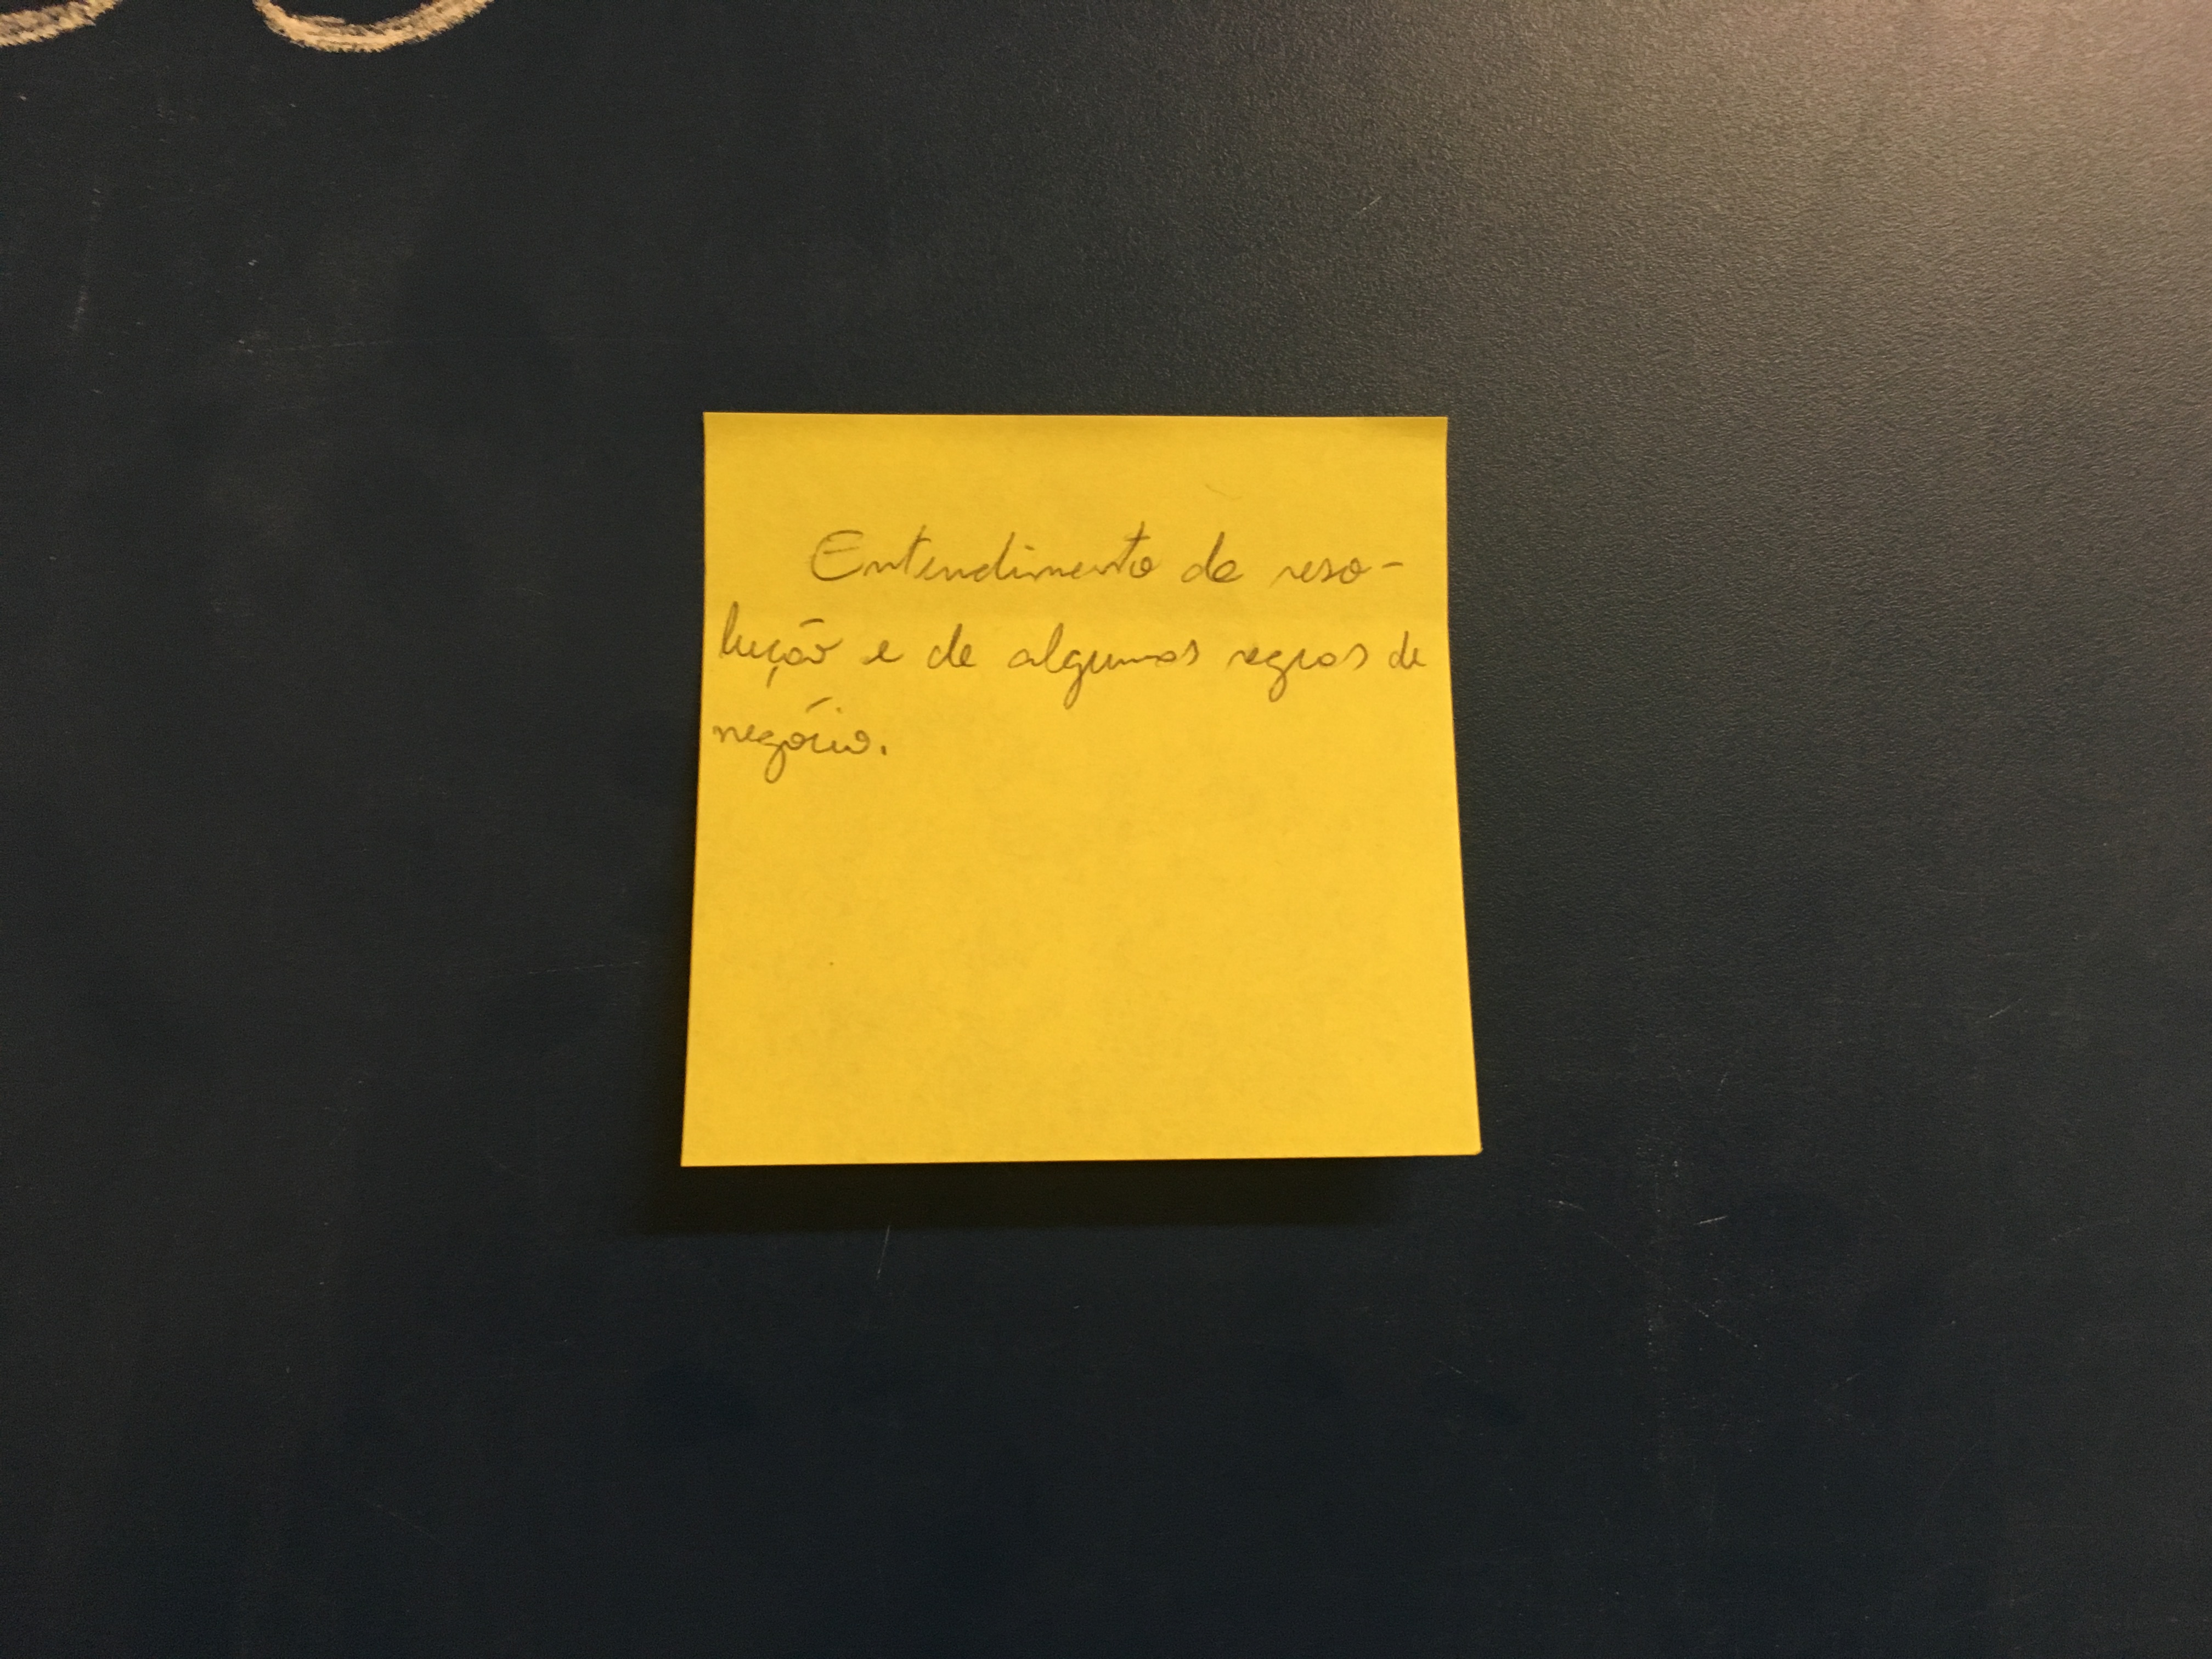 Entendimento de reso-
lução e de algumas regras de
negócio.